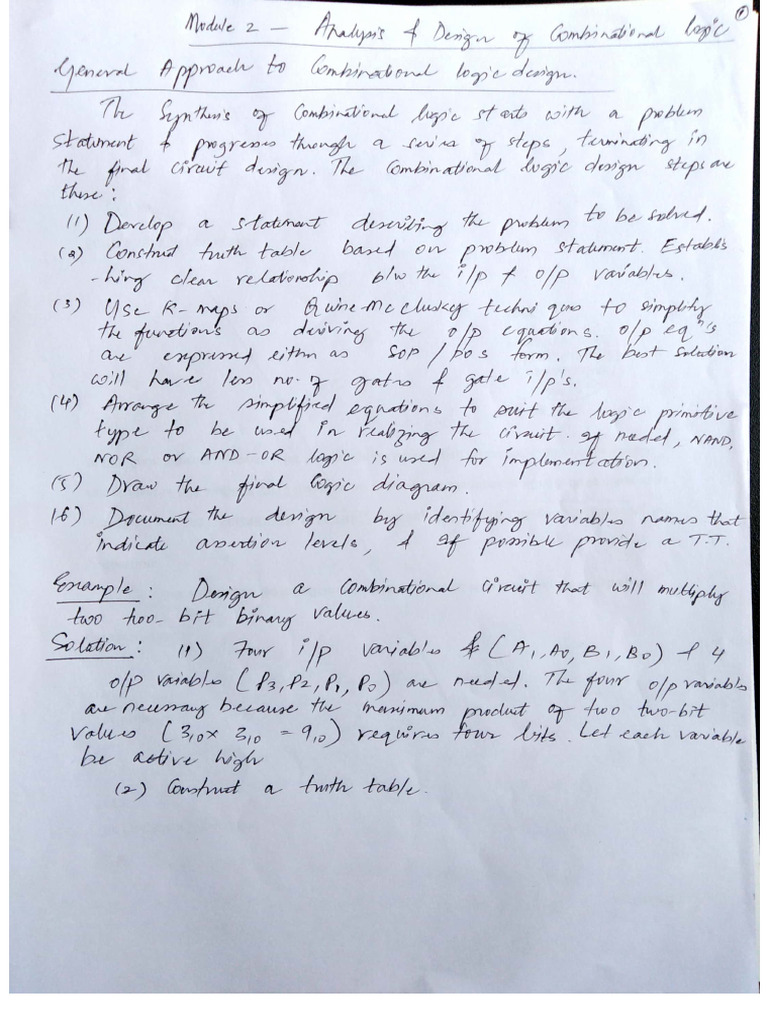 ①
Module 2 - Analysis & Design of Combinational logic
General Approach to Combinational logic design.
The Synthesis of Combinational logic starts with a problem
statement & progresses through a series of steps, terminating in
the final circuit design. The Combinational logic design steps are
these:
(1) Develop a statement describing the problem to be solved.
(2) Construct truth table based on problem statement. Establis
-hing clear relationship b/w the i/p & o/p variables.
(3) Use K-maps or Quine-McCluskey techniques to simplify
the functions as deriving the o/p equations. o/p eqⁿ's
are expressed either as SOP / POS form. The best solution
will have less no. of gates & gate i/p's.
(4) Arrange the simplified equations to suit the logic primitive
type to be used in realizing the circuit. If needed, NAND,
NOR or AND-OR logic is used for implementation.
(5) Draw the final logic diagram.
(6) Document the design by identifying variables names that
indicate assertion levels, & If possible provide a T.T.
Example : Design a combinational circuit that will multiply
two two-bit binary values.
Solution : (1) Four i/p variables (A1, A0, B1, B0) & 4
o/p variables (P3, P2, P1, P0) are needed. The four o/p variables
are necessary because the maximum product of two two-bit
values (3₁₀ x 3₁₀ = 9₁₀) requires four bits. Let each variable
be active high
(2) Construct a truth table.